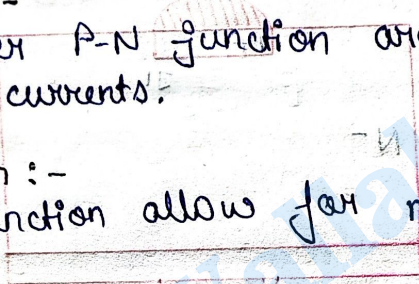 P-N junction
currents.
:-
nction allow for